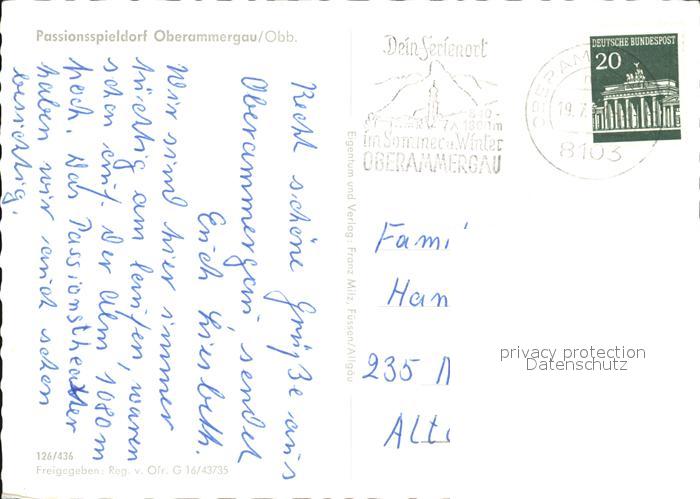 Passionsspieldorf Oberammergau/Obb.
Recht schöne Grüße aus
Oberammergau sendet
Euch Liesbeth.
Wir sind hier immer
tüchtig am laufen, waren
schon auf der Alm 1080m
hoch. Das Passionstheater
haben wir auch schon
besichtig.
126/436
Freigegeben: Reg. v. Ofr. G 16/43735
Eigentum und Verlag: Franz Milz, Füssen/Allgäu
Dein Ferienort
840-
1800m
im Sommer u. Winter
OBERAMMERGAU
OBERAM
19.7.
8103
DEUTSCHE BUNDESPOST
20
Fami
Han
235
Alt
privacy protection
Datenschutz